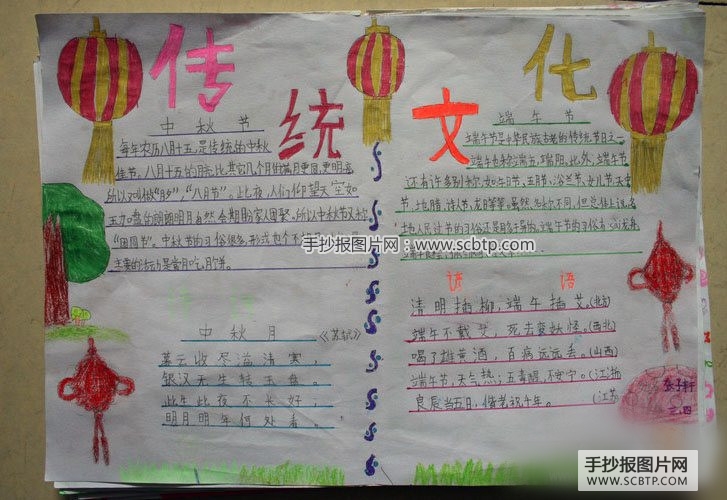 传统文化
中秋节
每年农历八月十五,是传统的中秋
佳节。八月十五的月亮比其它几个月的满月更圆,更明亮,
所以又叫做“月夕”,“八月节”。此夜,人们仰望天空如
玉如盘的朗朗明月,自然会期盼家人团聚,所以中秋节又称
“团圆节”。中秋节的习俗很多,形式也
主要的活动是赏月吃月饼。
中秋月
《苏轼》
暮云收尽溢清寒,
银汉无生转玉盘。
此生此夜不长好,
明月明年何处看。
端午节
端午节是中华民族古老的传统节日之一。
端午也称端五,端阳。此外,端午节
还有许多别称,如:午日节、五月节、浴兰节、女儿节、天中
节、地腊、诗人节、龙日等等。虽然名称不同,但总体上说,各
地人民过节的习俗还是
谚语
清明插柳,端午插艾。(北方)
端午不戴艾,死去变妖怪。(西北)
喝了雄黄酒,百病远远丢。(山西)
端午节,天气热;五毒醒,不安宁。(江浙
良辰当五日,偕老祝千年。(江苏
手抄报图片网 - www.scbtp.com
手抄报图片网
SCBTP.COM